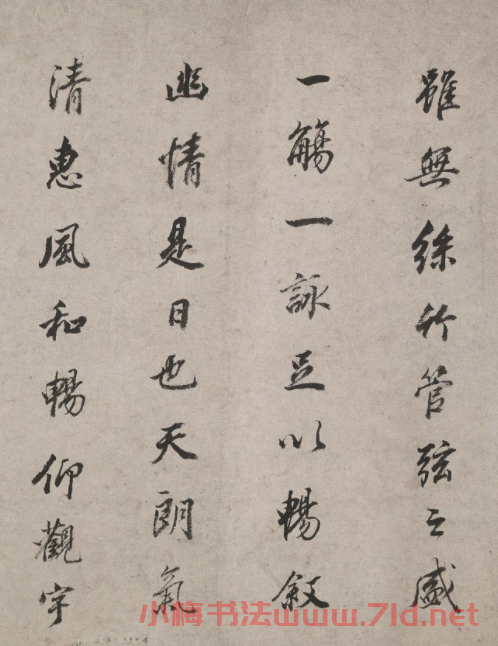 雖無絲竹管弦之盛
一觴一詠足以暢敘
幽情是日也天朗氣
清惠風和暢仰觀宇
小梅书法www.7ld.net